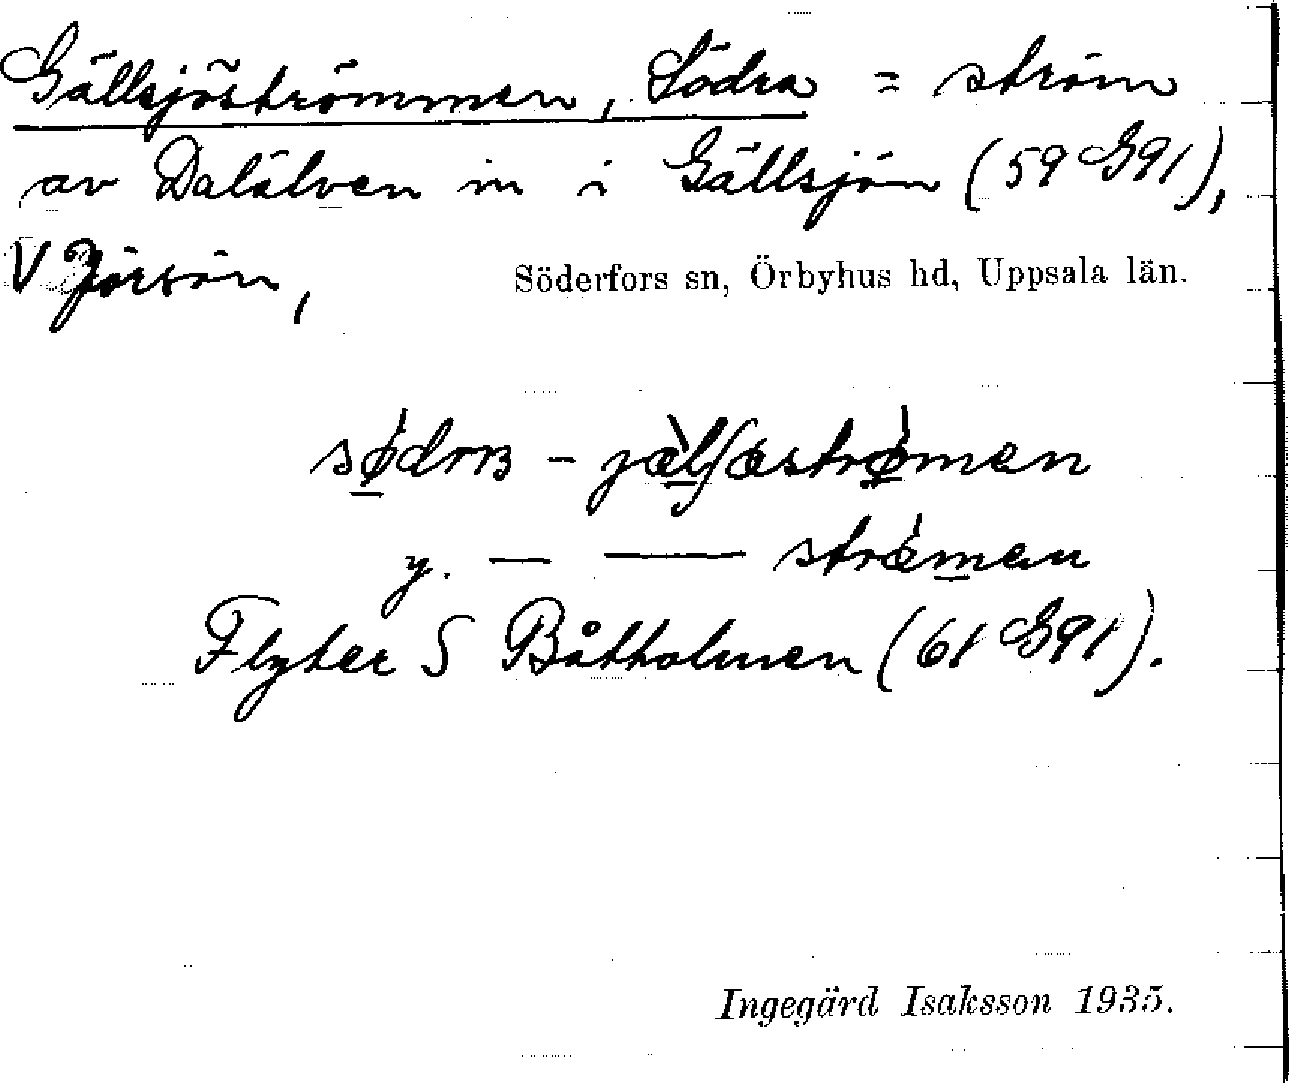 Gällsjöströmmen, Södra = ström
av Dalälven in i Gällsjön (59 G91),
V Jörsön, Söderfors sn, Örbyhus hd, Uppsala län.
y. — —
Flyter S Båtholmen (61 G91).
Ingegärd Isaksson 1935.